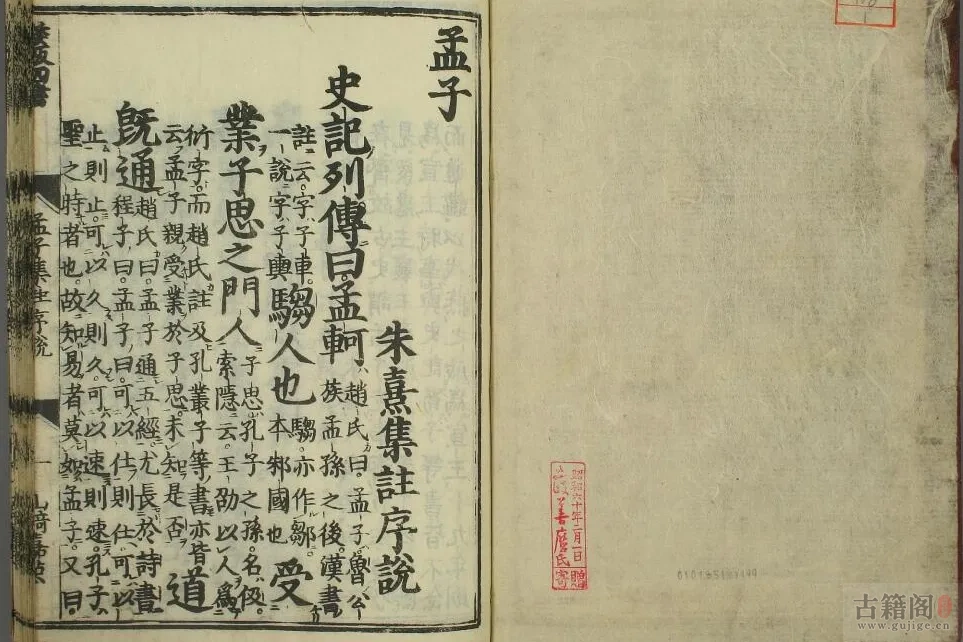 孟子
朱熹集註序說
史記列傳曰孟軻趙氏曰孟子魯公族孟孫之後漢書
註云字子車一說字子輿騶人也騶亦作鄒本邾國也受
業子思之門人子思孔子之孫名伋索隱云王劭以人為
衍字而趙氏註及孔叢子等書亦皆云孟子親受業於子思未知是否道
既通趙氏曰孟子通五經尤長於詩書程子曰孟子曰可以仕則仕可以
止則止可以久則久可以速則速孔子聖之時者也故知易者莫如孟子又曰
孟子集註序說
一
昭和六十年二月一日
氏寄贈
古籍阁
www.gujige.cn